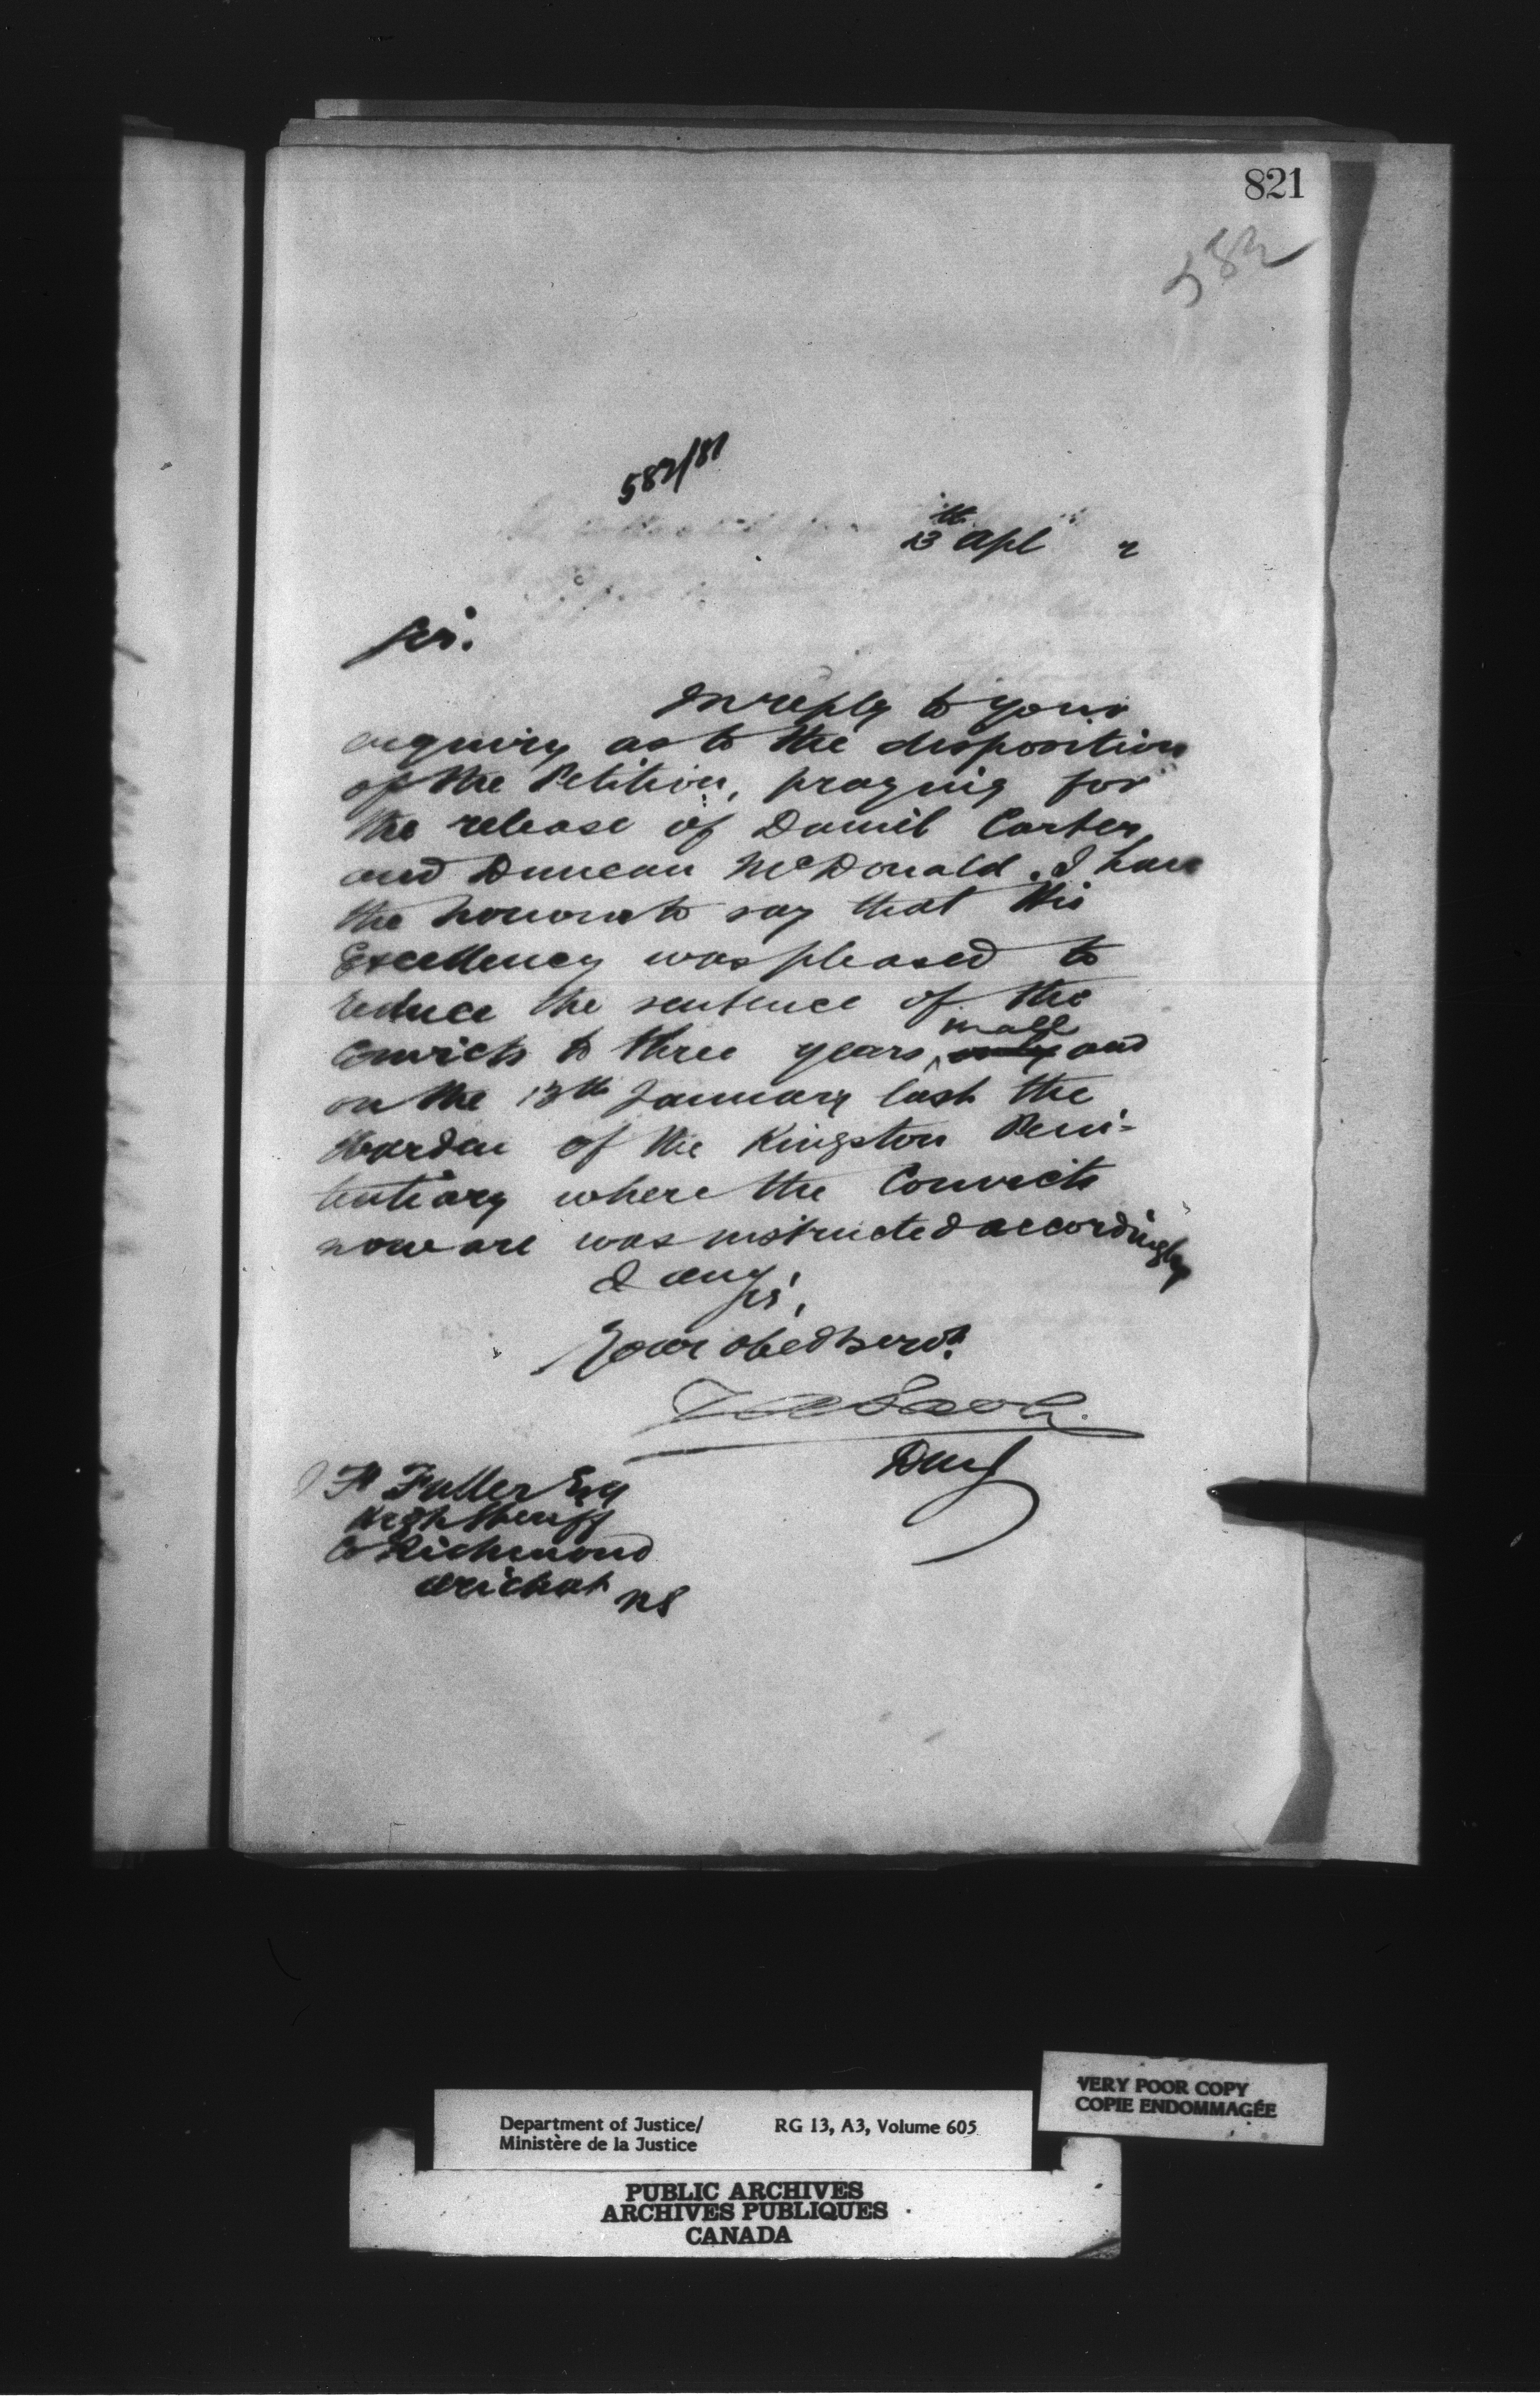 821
582
582/81
13th Apl 2
Sir.
In reply to your
enquiry as to the disposition
of the Petition, praying for
the release of Daniel Carter,
and Duncan McDonald. I have
the honour to say that His
Excellency was pleased to
reduce the sentence of the
Convicts to three years, in all and
on the 13th January last the
Warden of the Kingston Peni-
tentiary where the Convicts
now are was instructed accordingly
I am
Sir,
Your obed servt.
DMJ
Fuller Esq
High Sheriff
Co Richmond
Arichat NS
VERY POOR COPY
COPIE ENDOMMAGÉE
Department of Justice/ RG 13, A3, Volume 605
Ministère de la Justice
PUBLIC ARCHIVES
ARCHIVES PUBLIQUES
CANADA